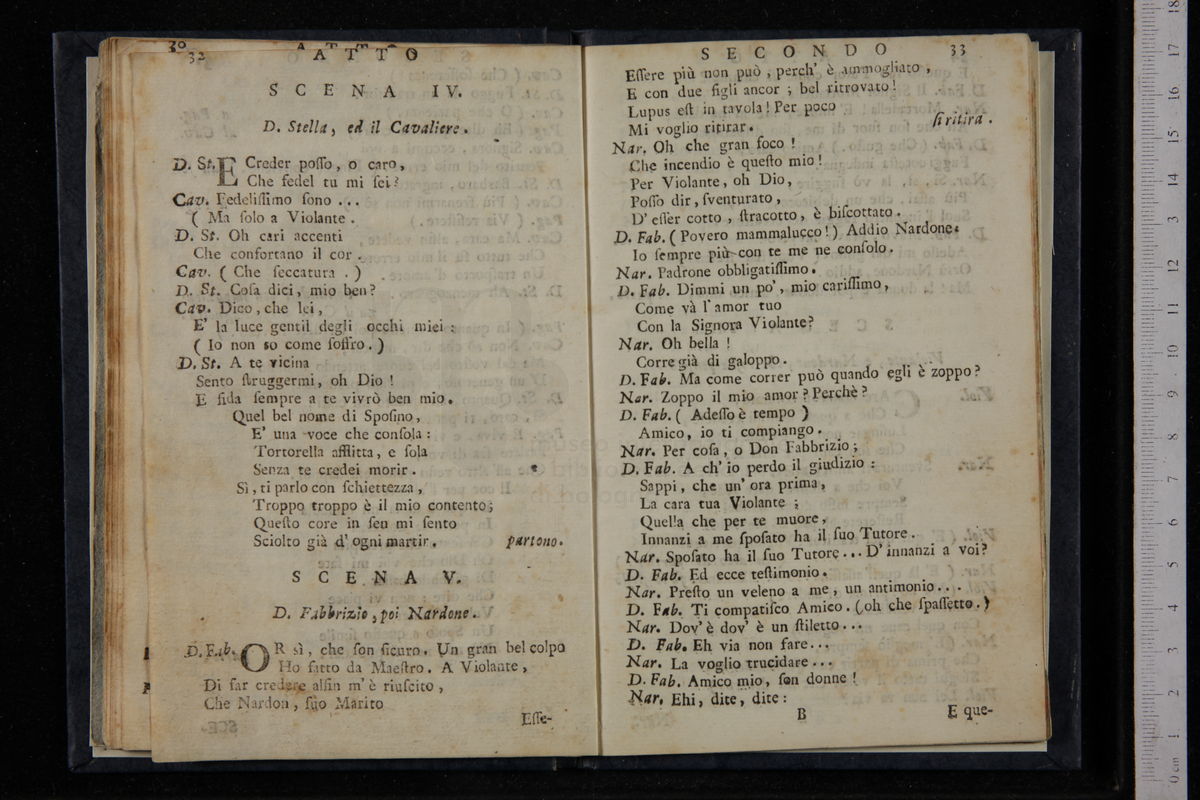 30
32 ATTO
SCENA IV.
D. Stella, ed il Cavaliere.
D. St. E Creder posso, o caro,
Che fedel tu mi sei?
Cav. Fedelissimo sono ...
( Ma solo a Violante.
D. St. Oh cari accenti
Che confortano il cor.
Cav. ( Che seccatura. )
D. St. Cosa dici, mio ben?
Cav. Dico, che lei,
E' la luce gentil degli occhi miei:
( Io non so come soffro. )
D. St. A te vicina
Sento struggermi, oh Dio!
E fida sempre a te vivrò ben mio.
Quel bel nome di Sposino,
E' una voce che consola:
Tortorella afflitta, e sola
Senza te credei morir.
Sì, ti parlo con schiettezza,
Troppo troppo è il mio contento;
Questo core in sen mi sento
Sciolto già d' ogni martir. partono.
SCENA V.
D. Fabbrizio, poi Nardone.
D. Fab. OR sì, che son sicuro. Un gran bel colpo
Ho fatto da Maestro. A Violante,
Di far credere alfin m' è riuscito,
Che Nardon, suo Marito
Esse-
SECONDO 33
Essere più non può, perch' è ammogliato,
E con due figli ancor; bel ritrovato!
Lupus est in tavola! Per poco
Mi voglio ritirar. si ritira.
Nar. Oh che gran foco!
Che incendio è questo mio!
Per Violante, oh Dio,
Posso dir, sventurato,
D' esser cotto, stracotto, è biscottato.
D. Fab. ( Povero mammalucco! ) Addio Nardone.
Io sempre più con te me ne consolo.
Nar. Padrone obbligatissimo.
D. Fab. Dimmi un po', mio carissimo,
Come và l' amor tuo
Con la Signora Violante?
Nar. Oh bella!
Corre già di galoppo.
D. Fab. Ma come correr può quando egli è zoppo?
Nar. Zoppo il mio amor? Perchè?
D. Fab. ( Adesso è tempo )
Amico, io ti compiango.
Nar. Per cosa, o Don Fabbrizio;
D. Fab. A ch' io perdo il giudizio:
Sappi, che un' ora prima,
La cara tua Violante;
Quella che per te muore,
Innanzi a me sposato ha il suo Tutore.
Nar. Sposato ha il suo Tutore... D' innanzi a voi?
D. Fab. Ed ecce testimonio.
Nar. Presto un veleno a me, un antimonio...
D. Fab. Ti compatisco Amico. (oh che spassetto.)
Nar. Dov' è dov' è un stiletto...
D. Fab. Eh via non fare...
Nar. La voglio trucidare...
D. Fab. Amico mio, son donne!
Nar. Ehi, dite, dite:
B E que-